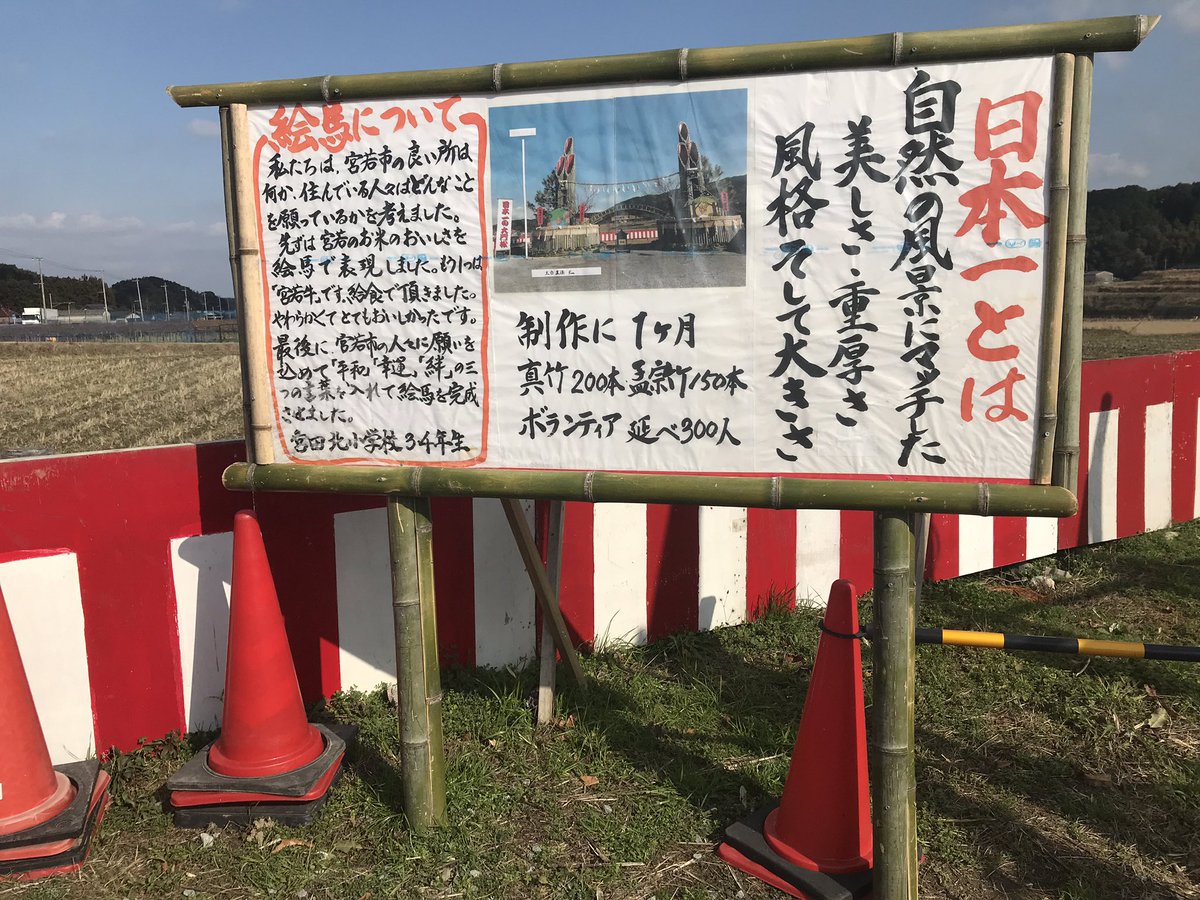 日本一とは
自然の風景にマッチした
美しさ・重厚さ
風格そして大きさ
制作に 1ヶ月
真竹200本・孟宗竹150本
ボランティア 延べ300人
絵馬について
私たちは、宮若市の良い所は
何か、住んでいる人々はどんなこと
を願っているかを考えました。
先ずは宮若のお米のおいしさを
絵馬で表現しました。もう1つは
「宮若牛」です。給食で頂きました。
やわらかくてとてもおいしかったです。
最後に、宮若市の人々に願いを
込めて「平和」「幸運」「絆」の三
つの言葉を入れて絵馬を完成
させました。
宮田北小学校3・4年生